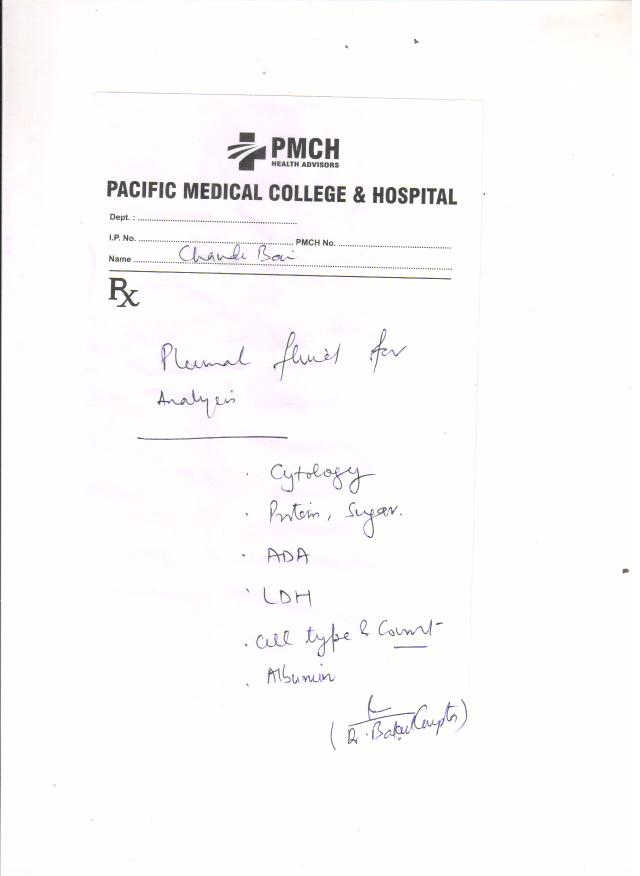 PMCH
HEALTH ADVISORS
PACIFIC MEDICAL COLLEGE & HOSPITAL
Dept. :
I.P. No. PMCH No.
Name Chandi Bai
Rx
Pleural fluid for
Analysis
· Cytology
· Protein, Sugar.
· ADA
· LDH
· Cell type & Count
· Albumin
(Dr. Gupta)